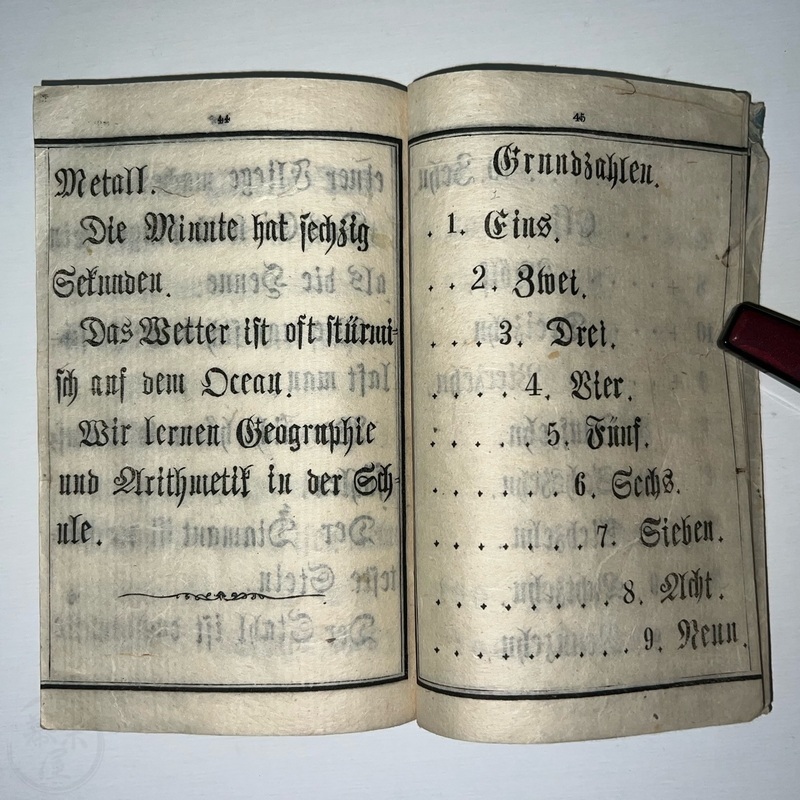 44
Metall.
Die Minute hat sechzig
Sekunden.
Das Wetter ist oft stürmi-
sch auf dem Ocean.
Wir lernen Geographie
und Arithmetik in der Sch-
ule.
45
Grundzahlen.
. 1. Eins.
. . 2. Zwei.
. . . 3. Drei.
. . . . 4. Vier.
. . . . . 5. Fünf.
. . . . . . 6. Sechs.
. . . . . . . 7. Sieben.
. . . . . . . . 8. Acht.
. . . . . . . . . 9. Neun.